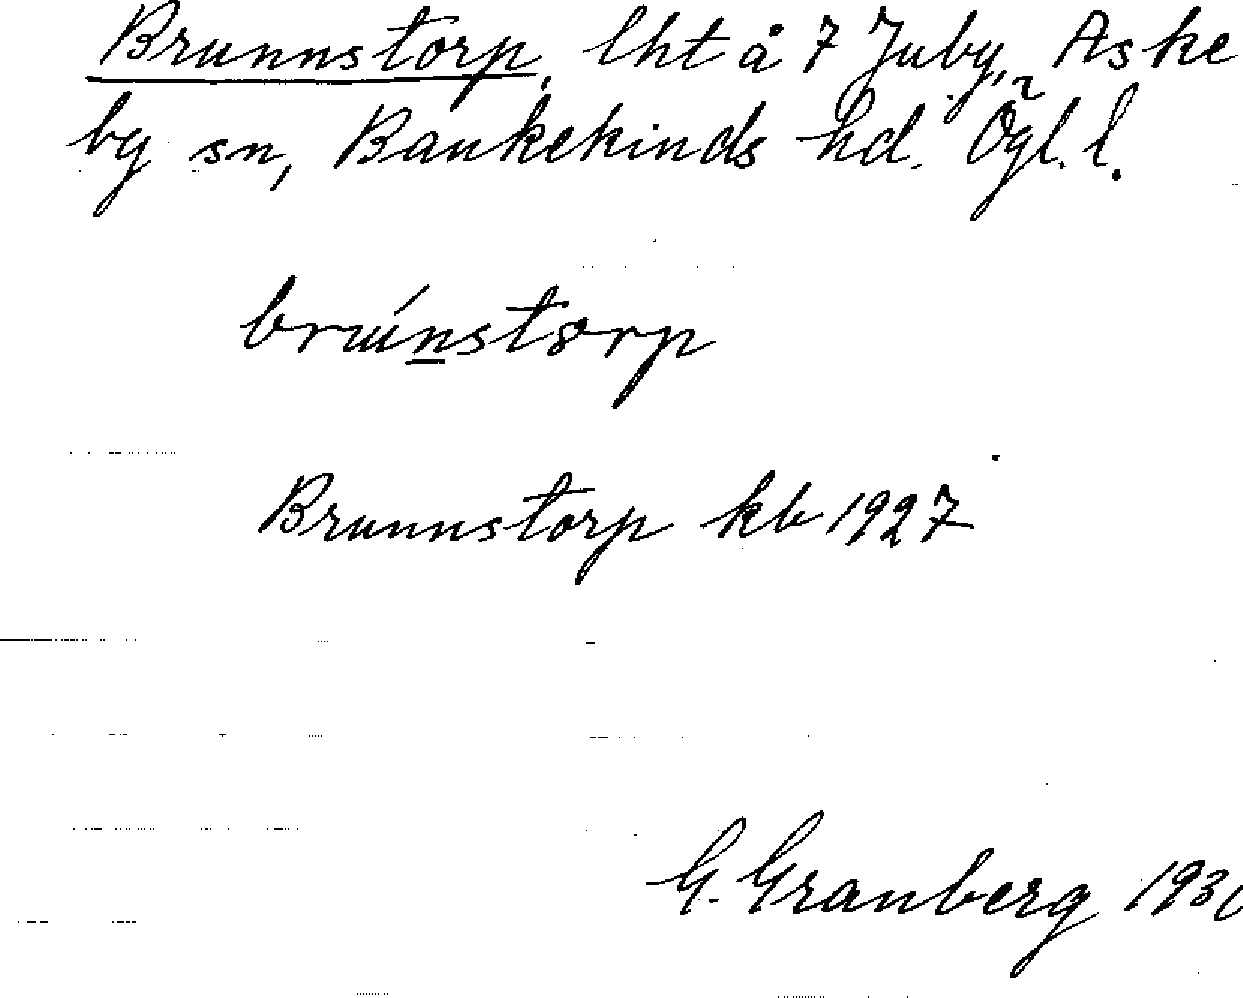 Brunnstorp, lht å 7 Juby, Aske
by sn, Bankekinds hd. Ögl. l.
brúnstorp
Brunnstorp kb 1927
G. Granberg